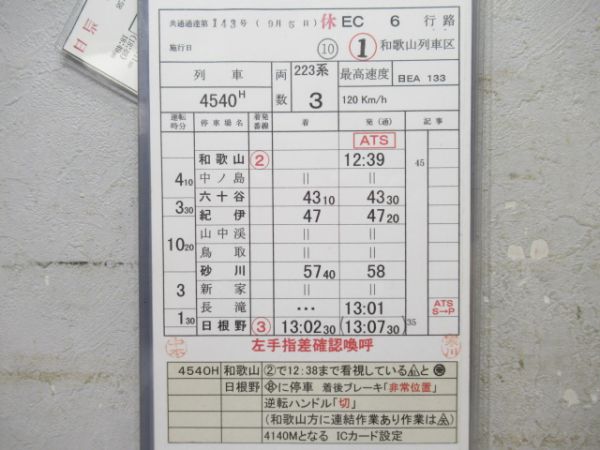 共通通達第143号 (9月5日) 休 EC 6 行路
施行日 ⑩ ① 和歌山列車区
列車 両数 223系 最高速度 日EA 133
4540H 3 120 Km/h
運転時分 停車場名 着発番線 着 発(通) 記事
ATS
和歌山 ② 12:39 45
4 10 中ノ島 || ||
六十谷 43 10 43 30
3 30 紀伊 47 47 20
山中渓 || ||
10 20 鳥取 || ||
砂川 57 40 58
3 新家 || ||
長滝 … 13:01 ATS S→P
1 30 日根野 ③ 13:02 30 (13:07 30) 35
左手指差確認喚呼
4540H 和歌山 ②で12:38まで看視している と
日根野 ⑧に停車 着後ブレーキ「非常位置」
逆転ハンドル「切」
(和歌山方に連結作業あり作業は )
4140Mとなる ICカード設定